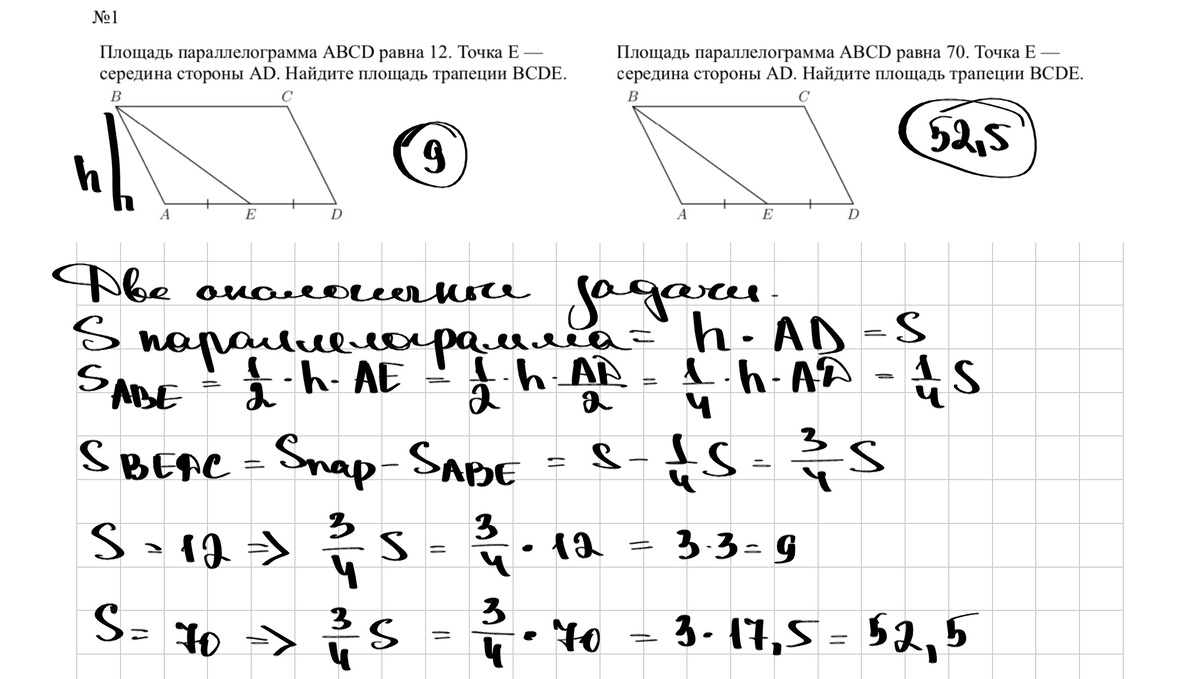 №1
Площадь параллелограмма ABCD равна 12. Точка E —
середина стороны AD. Найдите площадь трапеции BCDE.
B C
h
A E D
9
Площадь параллелограмма ABCD равна 70. Точка E —
середина стороны AD. Найдите площадь трапеции BCDE.
B C
A E D
52,5
Две аналогичные задачи.
S параллелограмма = h · AD = S
S ABE = 1/2 · h · AE = 1/2 · h · AD/2 = 1/4 · h · AD = 1/4 S
S BEDC = Sпар - S ABE = S - 1/4 S = 3/4 S
S = 12 => 3/4 S = 3/4 · 12 = 3·3 = 9
S = 70 => 3/4 S = 3/4 · 70 = 3 · 17,5 = 52,5